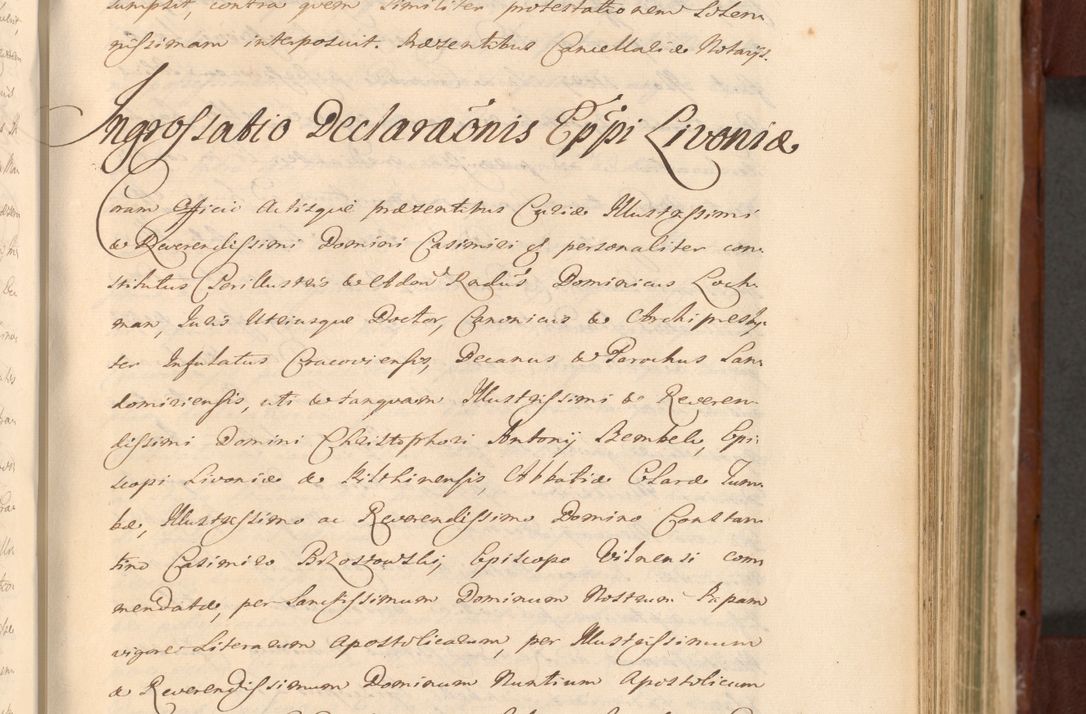 sumpsit, contra quem similiter protestationem solem
nissimam interposuit. Præsentibus Cancellariæ Notarijs.
Ingrossatio Declaraõnis Epp̃i Livoniæ
Coram Officio Actisque præsentibus Curiæ Illustrissimi
& Reverendissimi Domini Casimiri &c personaliter con-
stitutus Perillustris & Adm. Rndus Dominicus Loch-
man, Juris Utriusque Doctor, Canonicus & Archipresby-
ter Infulatus Cracoviensis, Decanus & Parochus San-
domiriensis, uti & tanquam Illustrissimi & Reveren-
dissimi Domini Christophori Antonij Szembek, Epi-
scopi Livoniæ & Pilthinensis, Abbatiæ Claræ Tum-
bæ, Illustrissimo ac Reverendissimo Domino Constan-
tino Casimiro Brzostowskj, Episcopo Vilnensi com-
mendatæ, per Sanctissimum Dominum Nostrum Papam
vigore Literarum Apostolicarum, per Illustrissimum
& Reverendissimum Dominum Nuntium Apostolicum